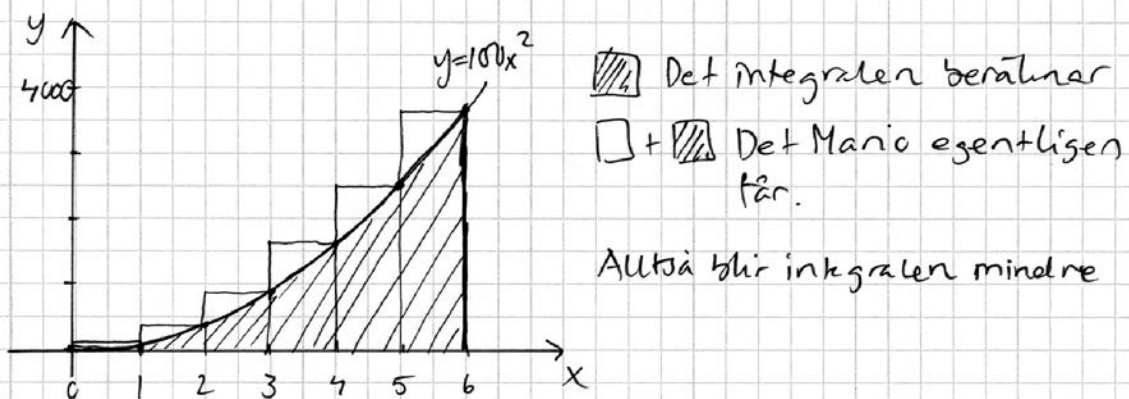 y
y=100x²
4000
0 1 2 3 4 5 6 x
Det integralen beräknar
+ Det Mario egentligen
får.
Alltså blir integralen mindre